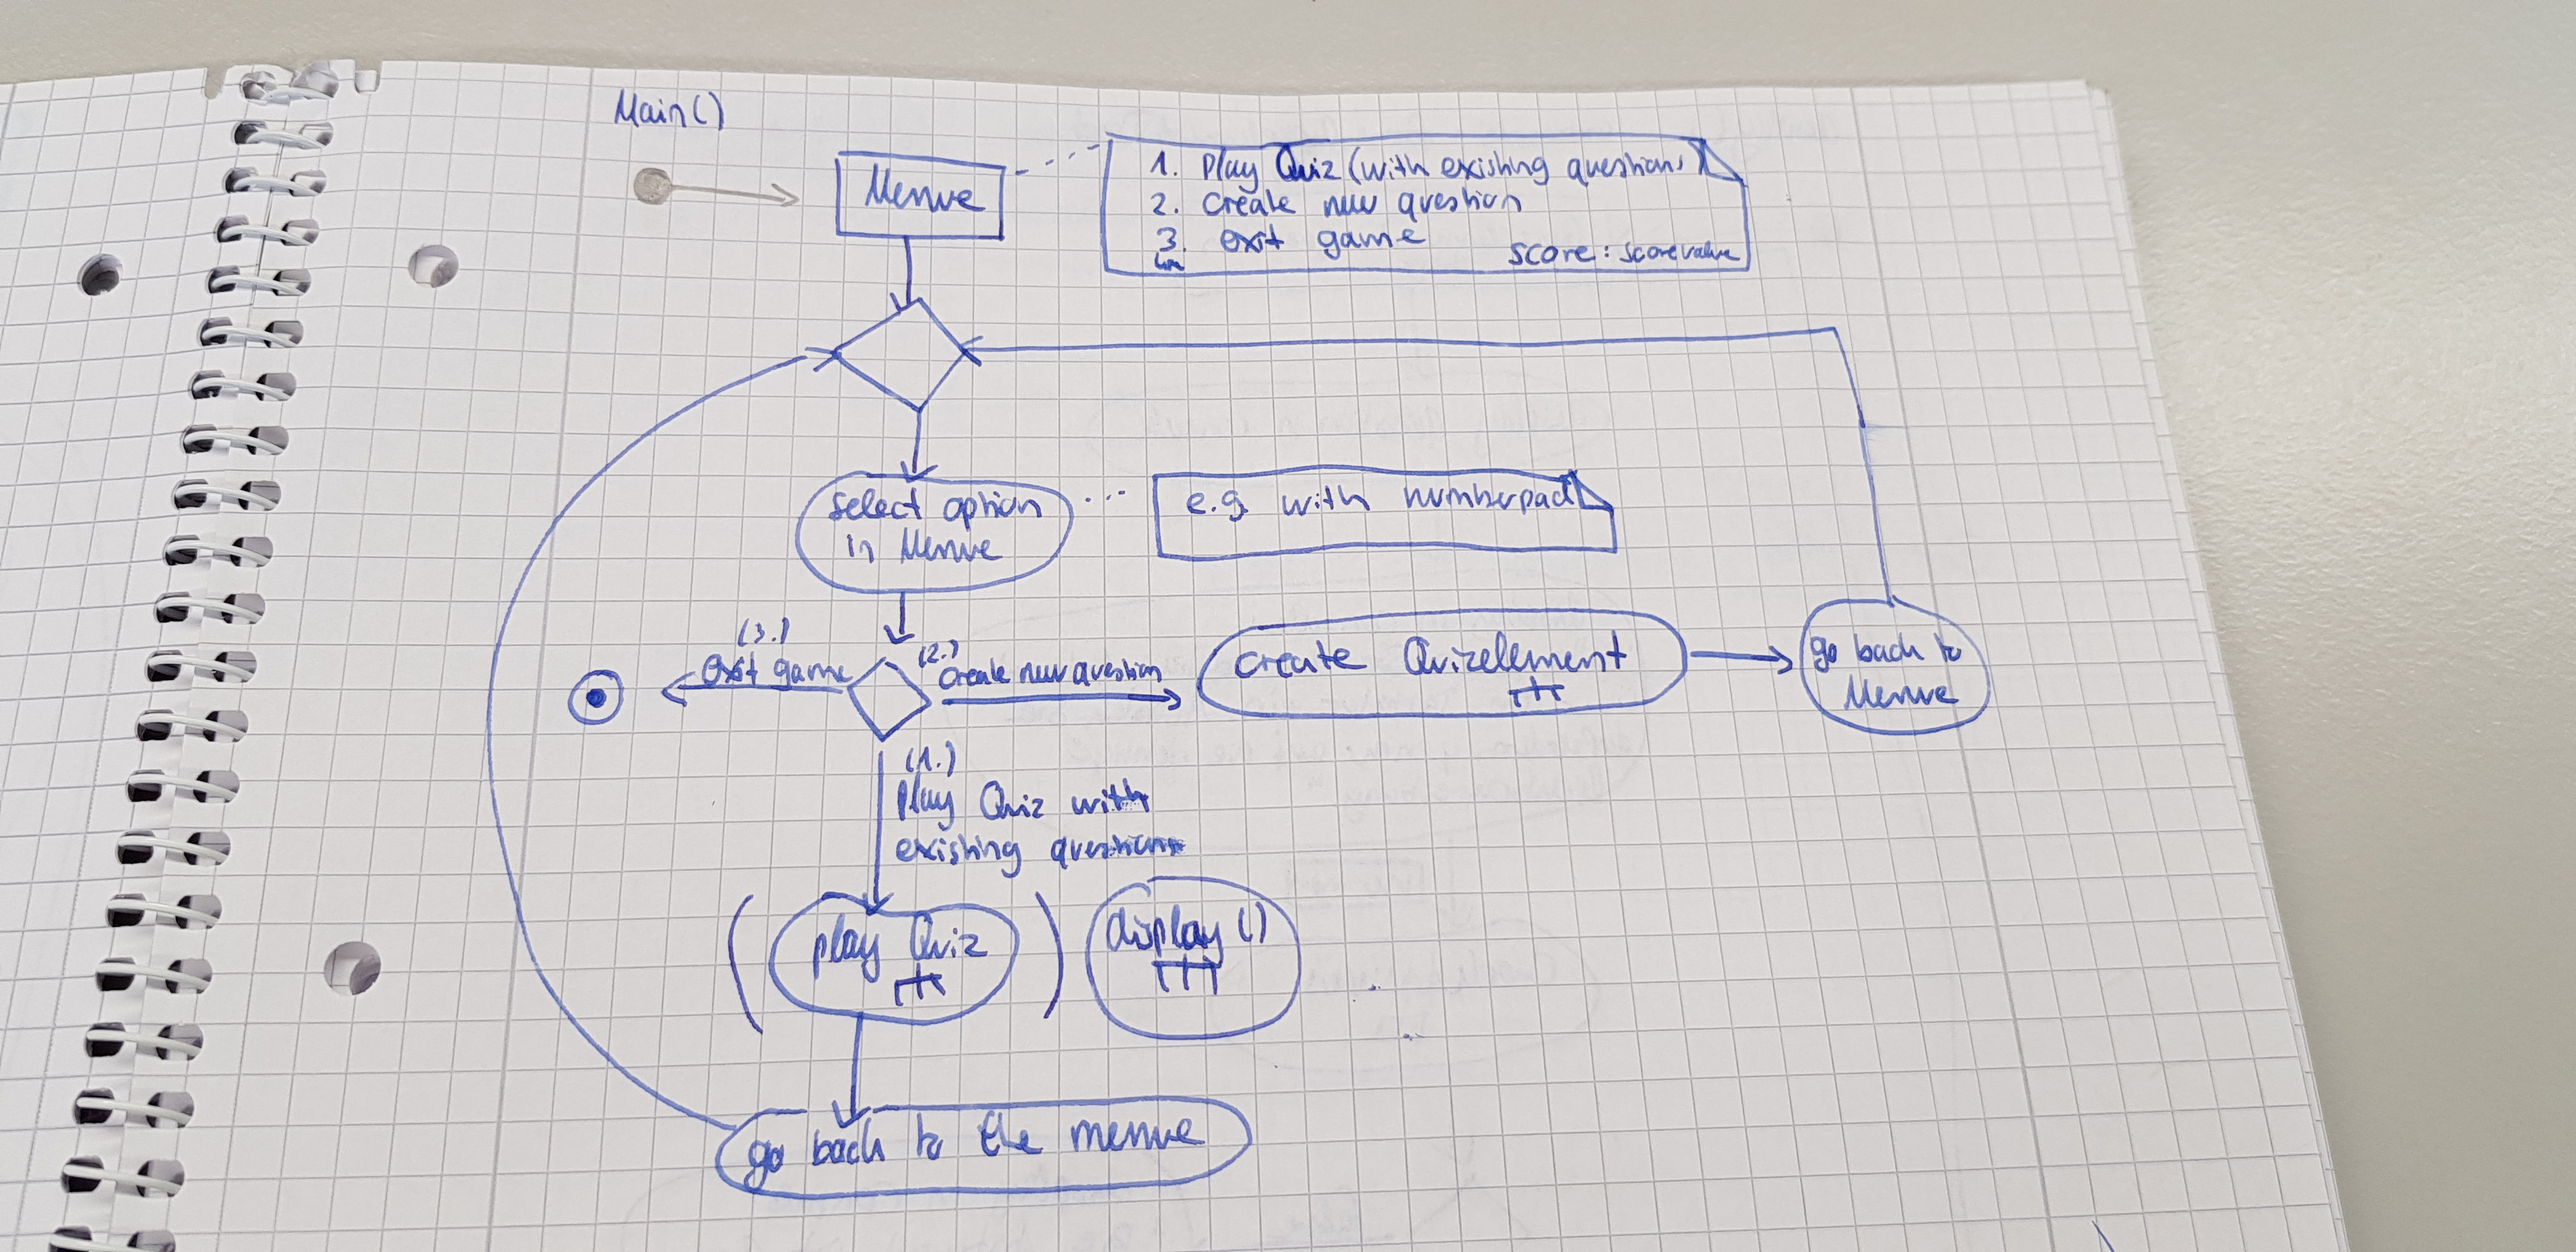 Main()
Menue
1. Play Quiz (with existing questions)
2. create new question
3. exit game
score: scorevalue
select option
in Menue
e.g. with numberpad
(3.)
exit game
(2.)
create new question
create Quizelement
go back to
Menue
(1.)
Play Quiz with
existing questions
play Quiz
display()
go back to the menue